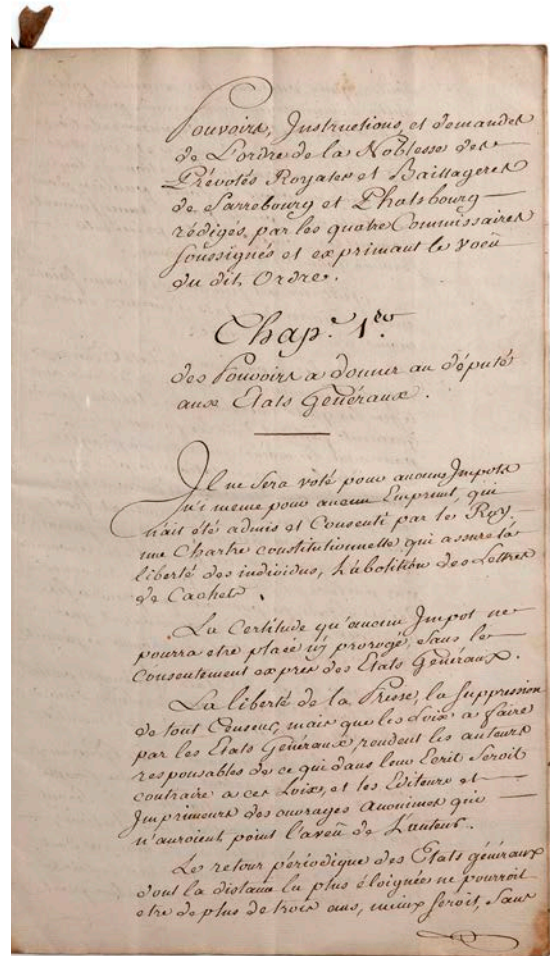 Pouvoirs, Instructions, et demandes
de L'ordre de la Noblesse des
Prévotés Royales et Baillageres
de Sarrebourg et Phalsbourg
rédigés, par les quatre Commissaires
soussignés et exprimant le voeü
du dit, Ordre.
Chap.e 1.er
des Pouvoirs a donner au député
aux Etats Généraux.
Il ne sera voté pour aucuns Impots
ni meme pour aucun Emprunt, qui
n'ait été admis et Consenti par le Roy.
une Chartre constitutionnelle qui assure la
liberté des individus, L'abolition des Lettres
de Cachets.
La Certitude qu'aucun Impot ne
pourra etre placé ny prorogé, sans le
Consentement exprès des Etats Généraux.
La liberté de la Presse, la suppression
de tout Censeur, mais que les Loix a faire
par les Etats Généraux, rendent les auteurs
responsables de ce qui dans leur Ecrit seroit
contraire a ces Loix, et les Editeurs et
Imprimeurs des ouvrages Anonimes qui
n'auroient point l'aveü de L'auteur.
Le retour périodique des Etats généraux
dont la distance la plus éloignée ne pourroit
etre de plus de trois ans, mieux seroit, sans